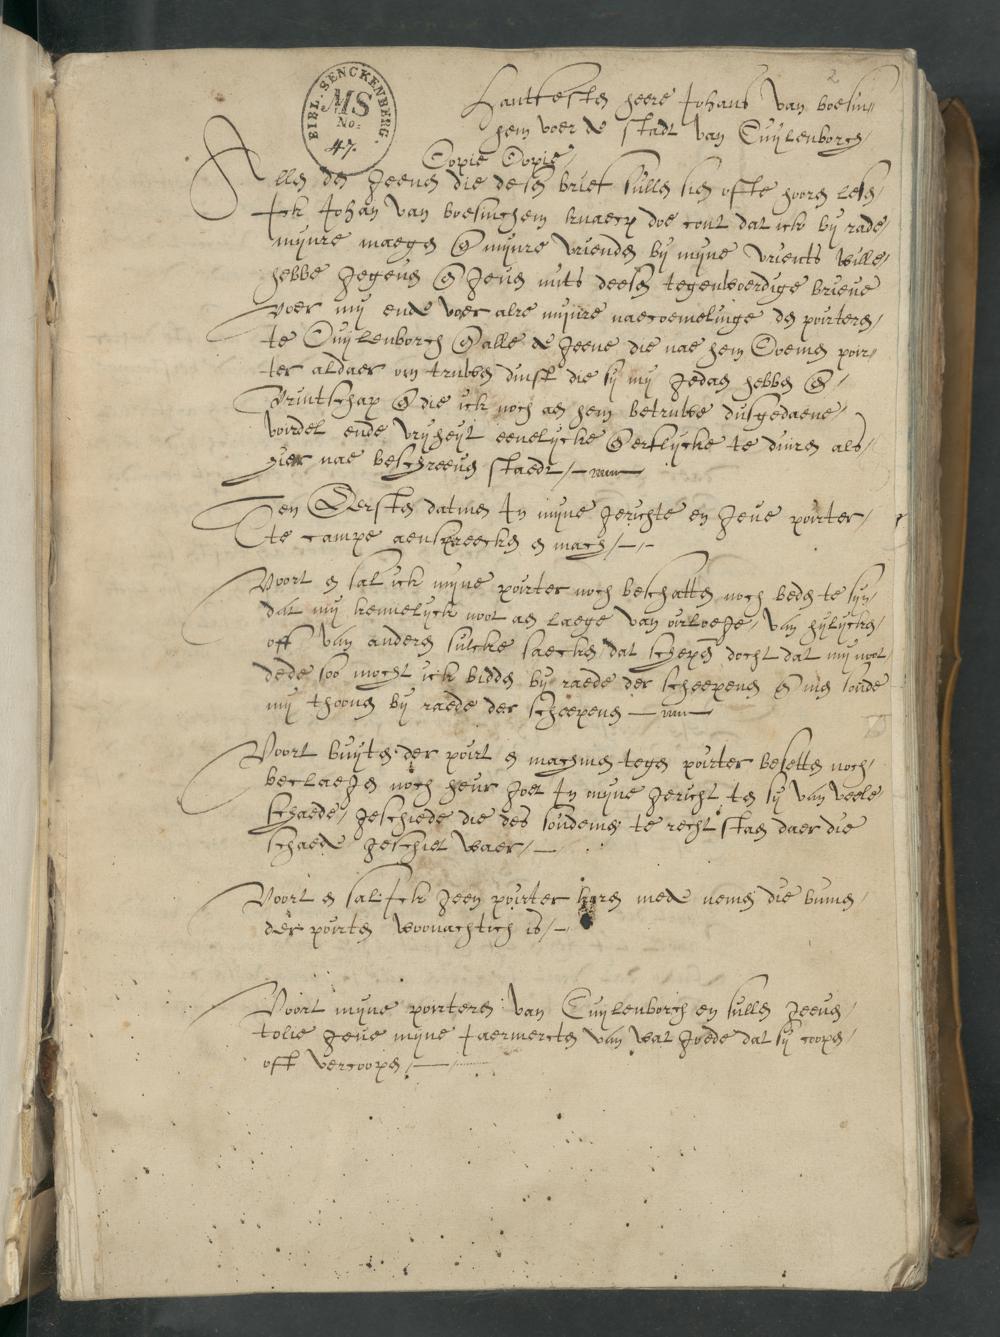 2
BIBL. SENCKENBERG.
MS
No:
47.
Hantfesten heere Johans van boesin//
hem voer de stadt van Cuylenborch/
Copie Copie/
Allen den geenen die desen brief sullen sien ofte hooren lesen
Ick Johan van boesinchem knaep doe cont dat ick bij rade/
mijnre maegen en mijnre vrienden bij mijne vrients wille/
hebbe gegeven en geve mits deesen tegenwoerdige brieve
voer mij ende voer alre mijnre naecoemelinge den poirteren/
te Cuylenborch en alle de geene die nae hem Coemen poir//
ter aldaer om truwen dinst die sij mij gedaen hebben en/
vruntschap en die ick noch aen hem betruwe dusgedaene/
voirdel ende vrijheyt eewelycke en erflycke te duiren als/
hier nae beschreven staedt/
Ten Eersten datmen In mijne gerichte en geve poirter/
te campe aenspreecken en mach/
Voort en sal ick mijne poirter noch beschatten noch beden te sijn
dat mij kennelyck noot aen laege van oirloege/ van hylycken/
off van anderen sulcke saecken dat schepen docht dat mij noot
dede soo mocht ick bidden bij raede der scheepenen en men soude
mij thoonen bij raede der scheepenen
Voort buyten der poirt en machmen tegen poirter besetten noch/
beclaegen noch heur goet In mijne gericht ten sij van veele
schaede/ geschiede die des soudemen te recht staen daer die
schaede geschiet waer/
Voort en sal Ick geen poirter mede nemen die binnen/
der poirten woonachtich is/
Voort mijne poirteren van Cuylenborch en sullen geven/
tolle geve mijne Jaermercten van wat goede dat sij coopen/
off vercoopen/